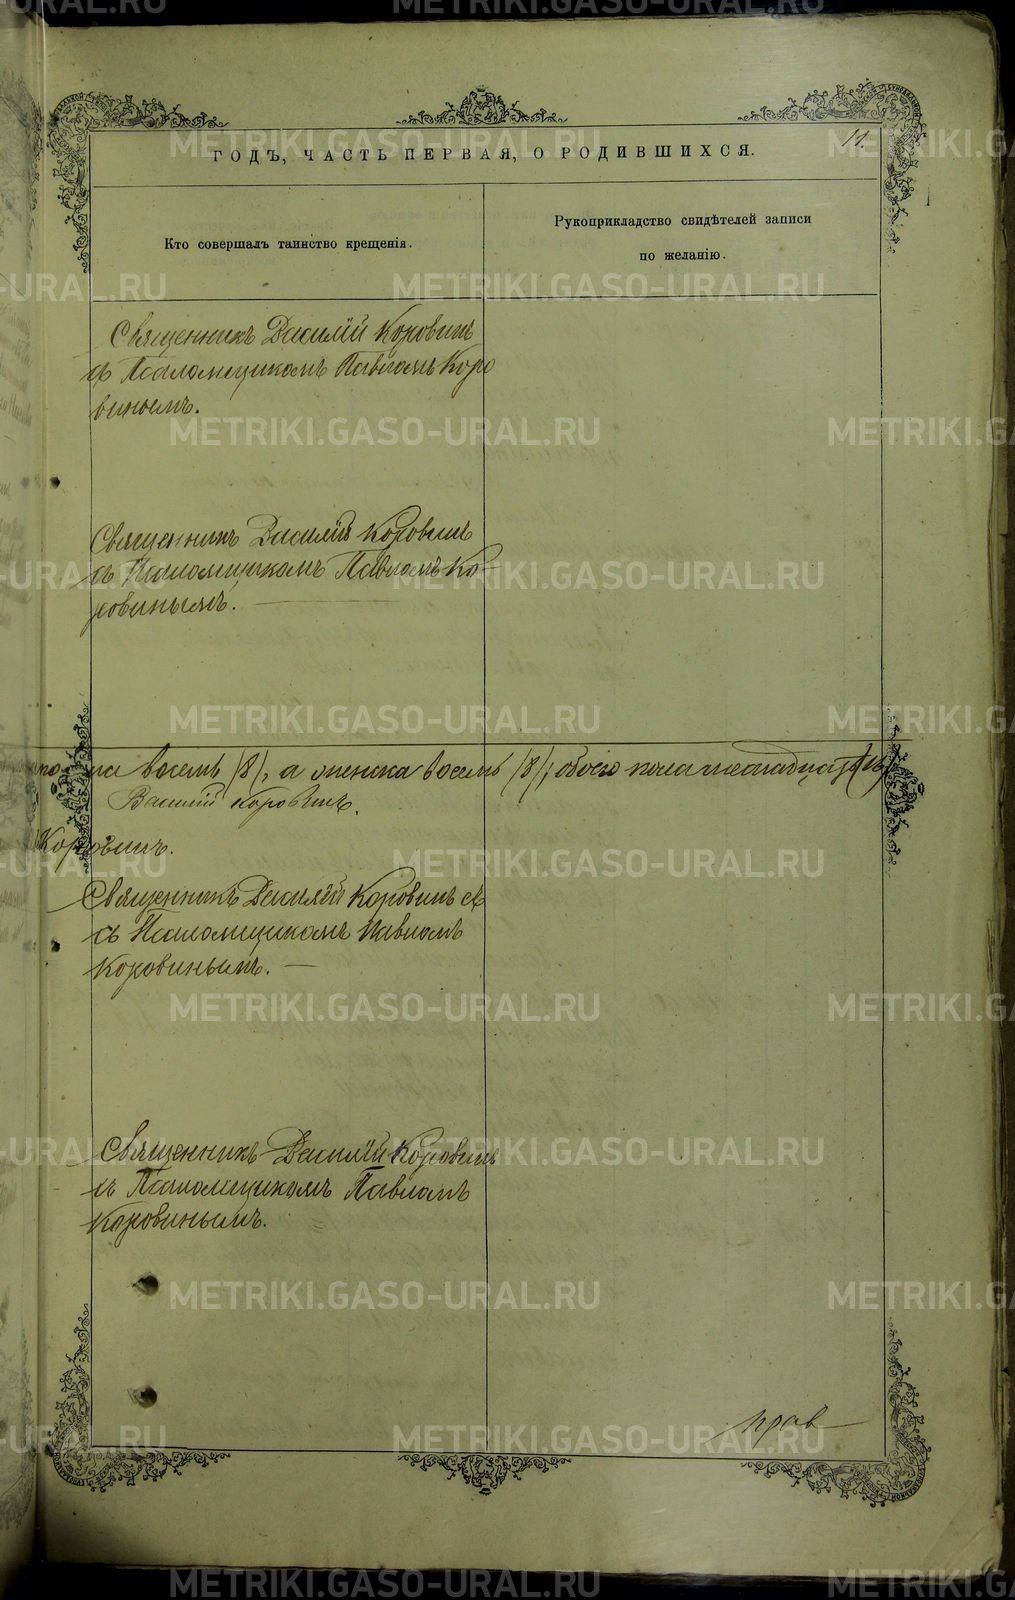 11.
ГОДЪ, ЧАСТЬ ПЕРВАЯ, О РОДИВШИХСЯ.
Кто совершалъ таинство крещенія.
Рукоприкладство свидѣтелей записи
по желанію.
Священникъ Василій Коровинъ
съ Псаломщикомъ Павломъ Коро
винымъ.
Священникъ Василій Коровинъ
съ Псаломщикомъ Павломъ Ко-
ровинымъ.
восемь /8/, а женска восемь /8/; обоего пола шестнадцать
Василий Коровинъ.
Коровинъ.
Священникъ Василій Коровинъ
съ Псаломщикомъ Павломъ
Коровинымъ.
Священникъ Василій Коровинъ
съ Псаломщикомъ Павломъ
Коровинымъ.
METRIKI.GASO-URAL.RU